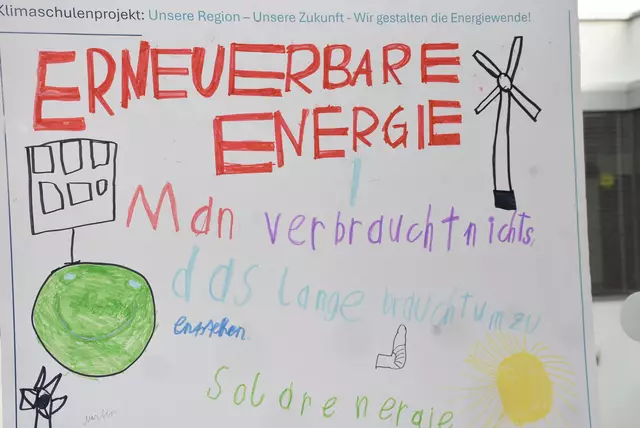 Klimaschulenprojekt: Unsere Region – Unsere Zukunft - Wir gestalten die Energiewende!
ERNEUERBARE
ENERGIE
Man verbraucht nichts,
das lange braucht um zu
enstehen.
Solarenergie